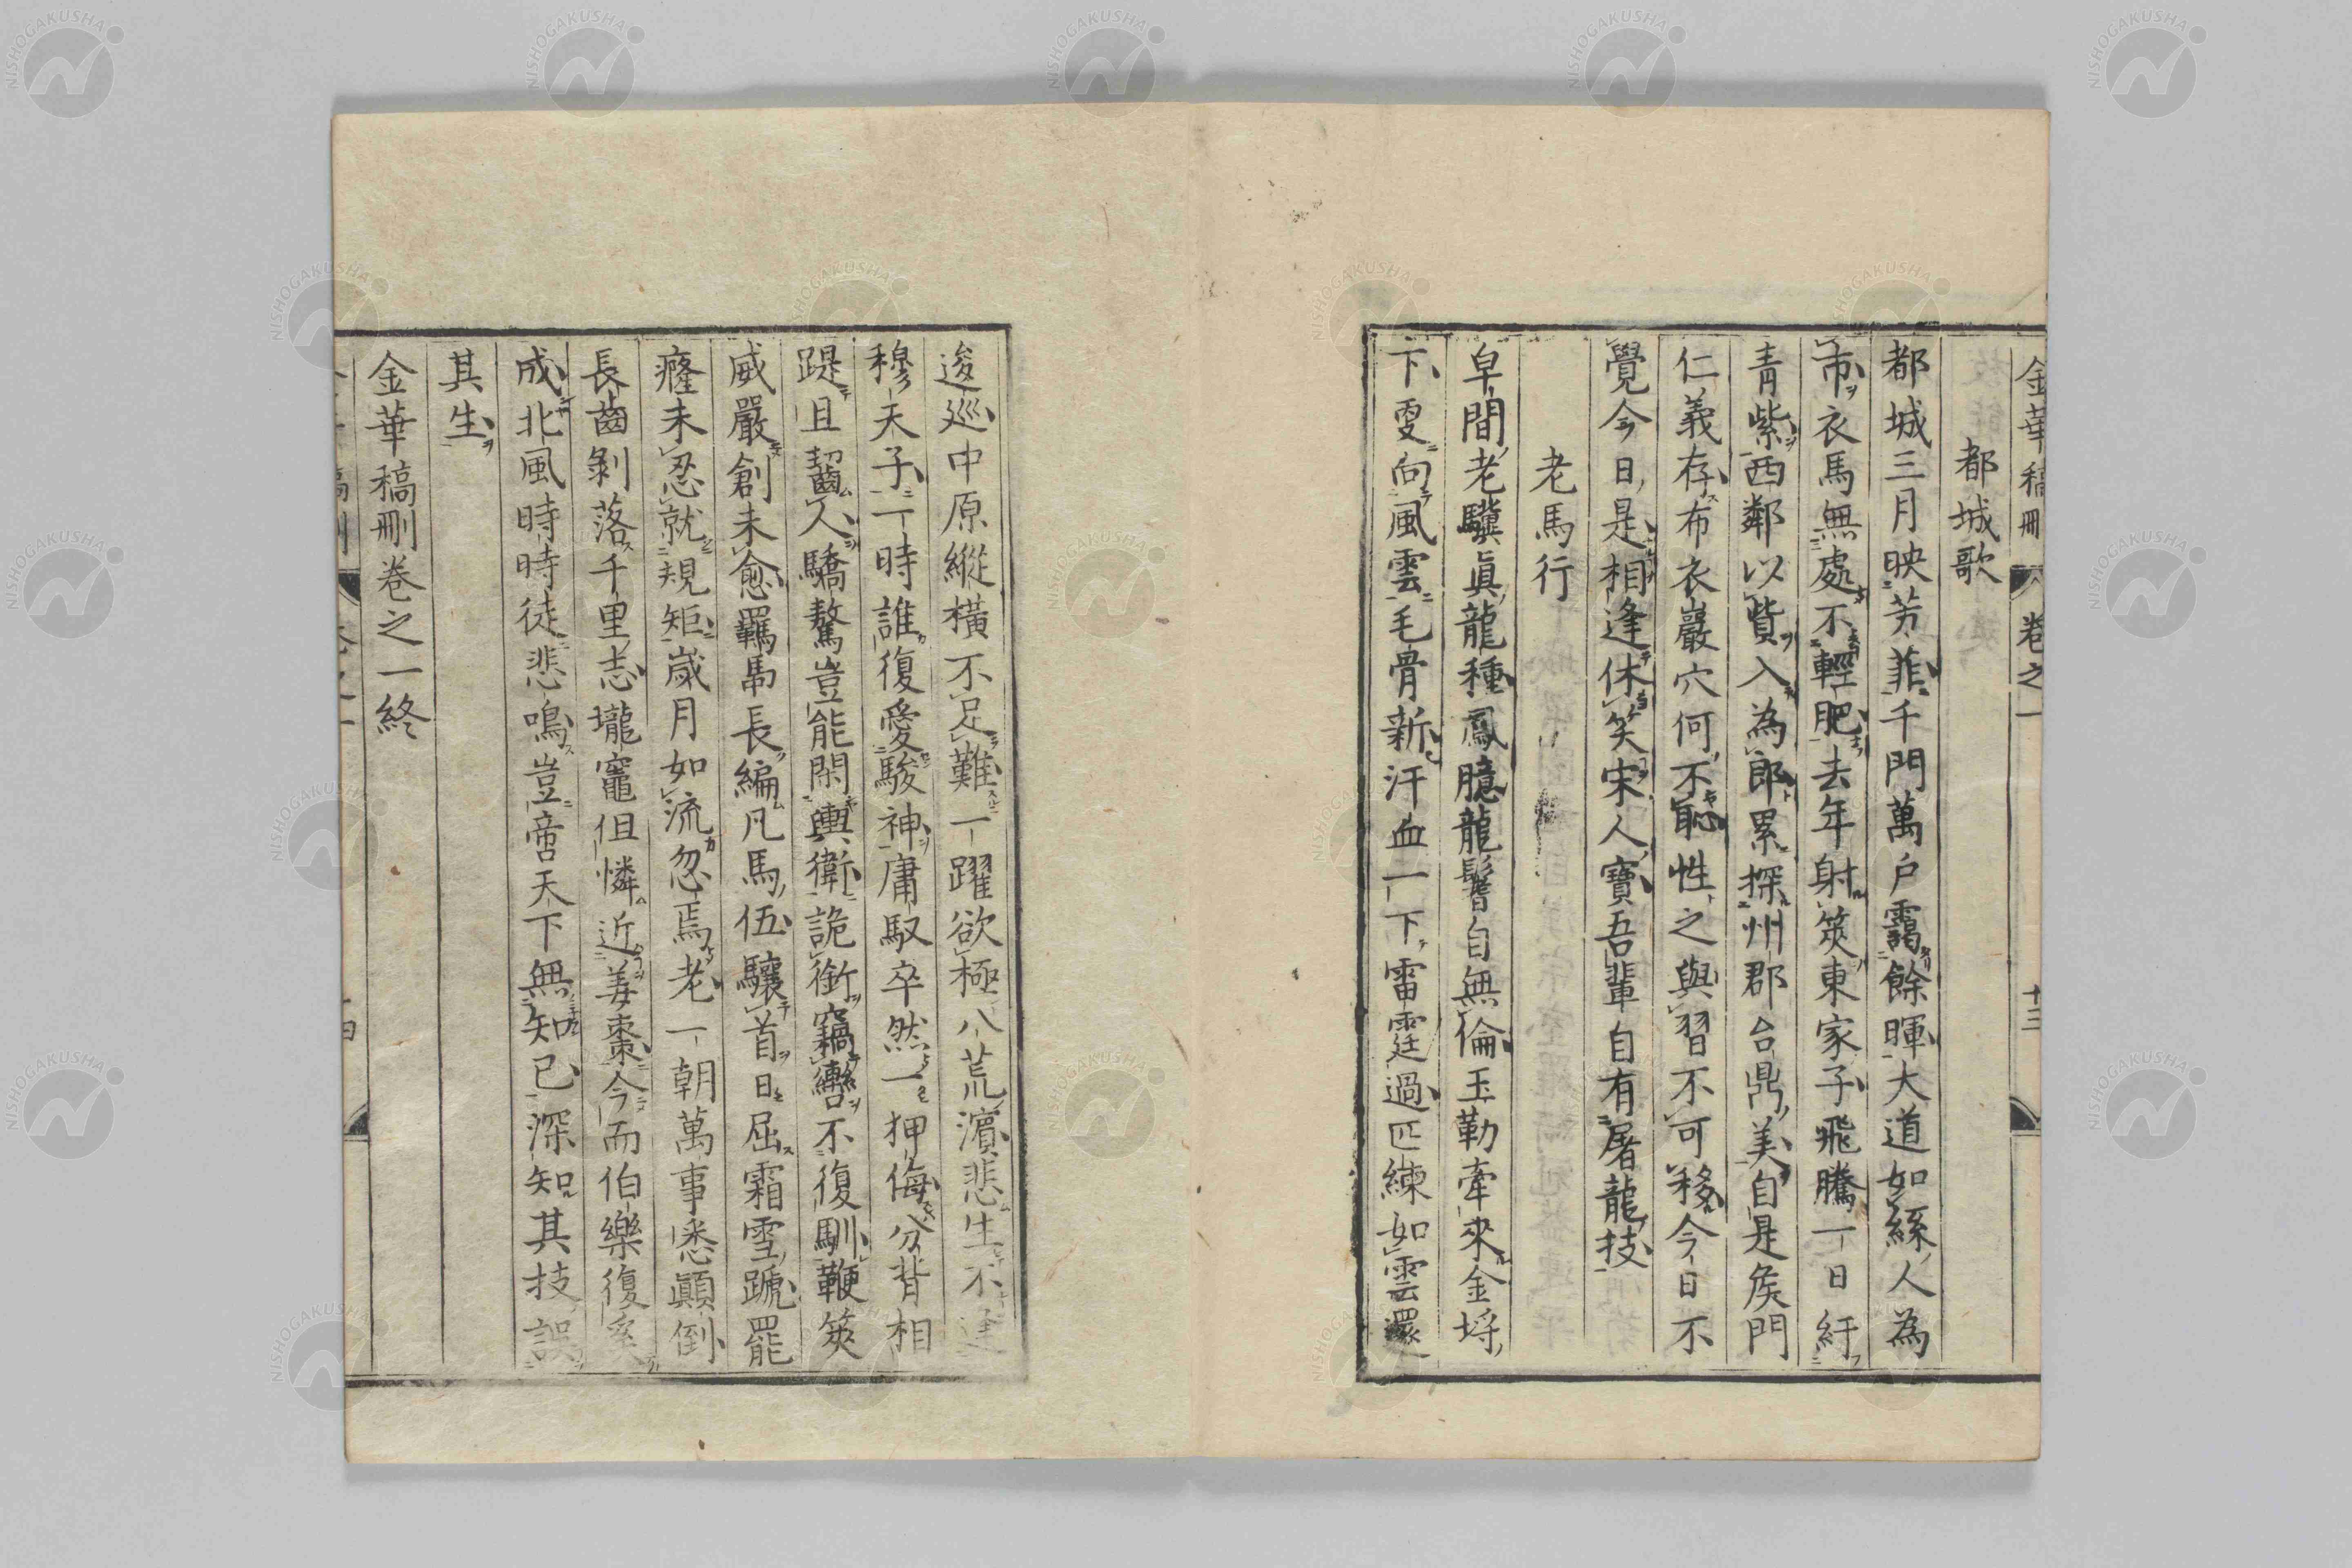 金華稿刪 卷之一 十三
都城歌
都城三月映芳菲千門萬戶靄餘暉大道如絲人為
市衣馬無處不輕肥去年射策東家子飛騰一日紆
青紫西鄰以貲入為郎累探州郡台鼎美自是侯門
仁義存布衣巖穴何不恥性之與習不可移今日不
覺今日是相逢休笑宋人寶吾輩自有屠龍技
老馬行
皁間老驥眞龍種鳳臆龍鬐自無倫玉勒牽來金埒
下更向風雲毛骨新汗血一下雷霆過匹練如雲還
逡巡中原縱橫不足難一躍欲極八荒濵悲生不逢
穆天子一時誰復愛駿神庸馭卒然一狎侮分背相
踶且齧人驕驁豈能閑輿衛詭銜竊轡不復馴鞭筴
威嚴創未愈羈馽長編凡馬伍驤首日屈霜雪蹏罷
癃未忍就規矩歲月如流忽焉老一朝萬事悉顚倒
長齒剝落千里志壠竈但憐近姜棗今而伯樂復奚
成北風時時徒悲鳴豈啻天下無知已深知其技誤
其生
金華稿刪卷之一終